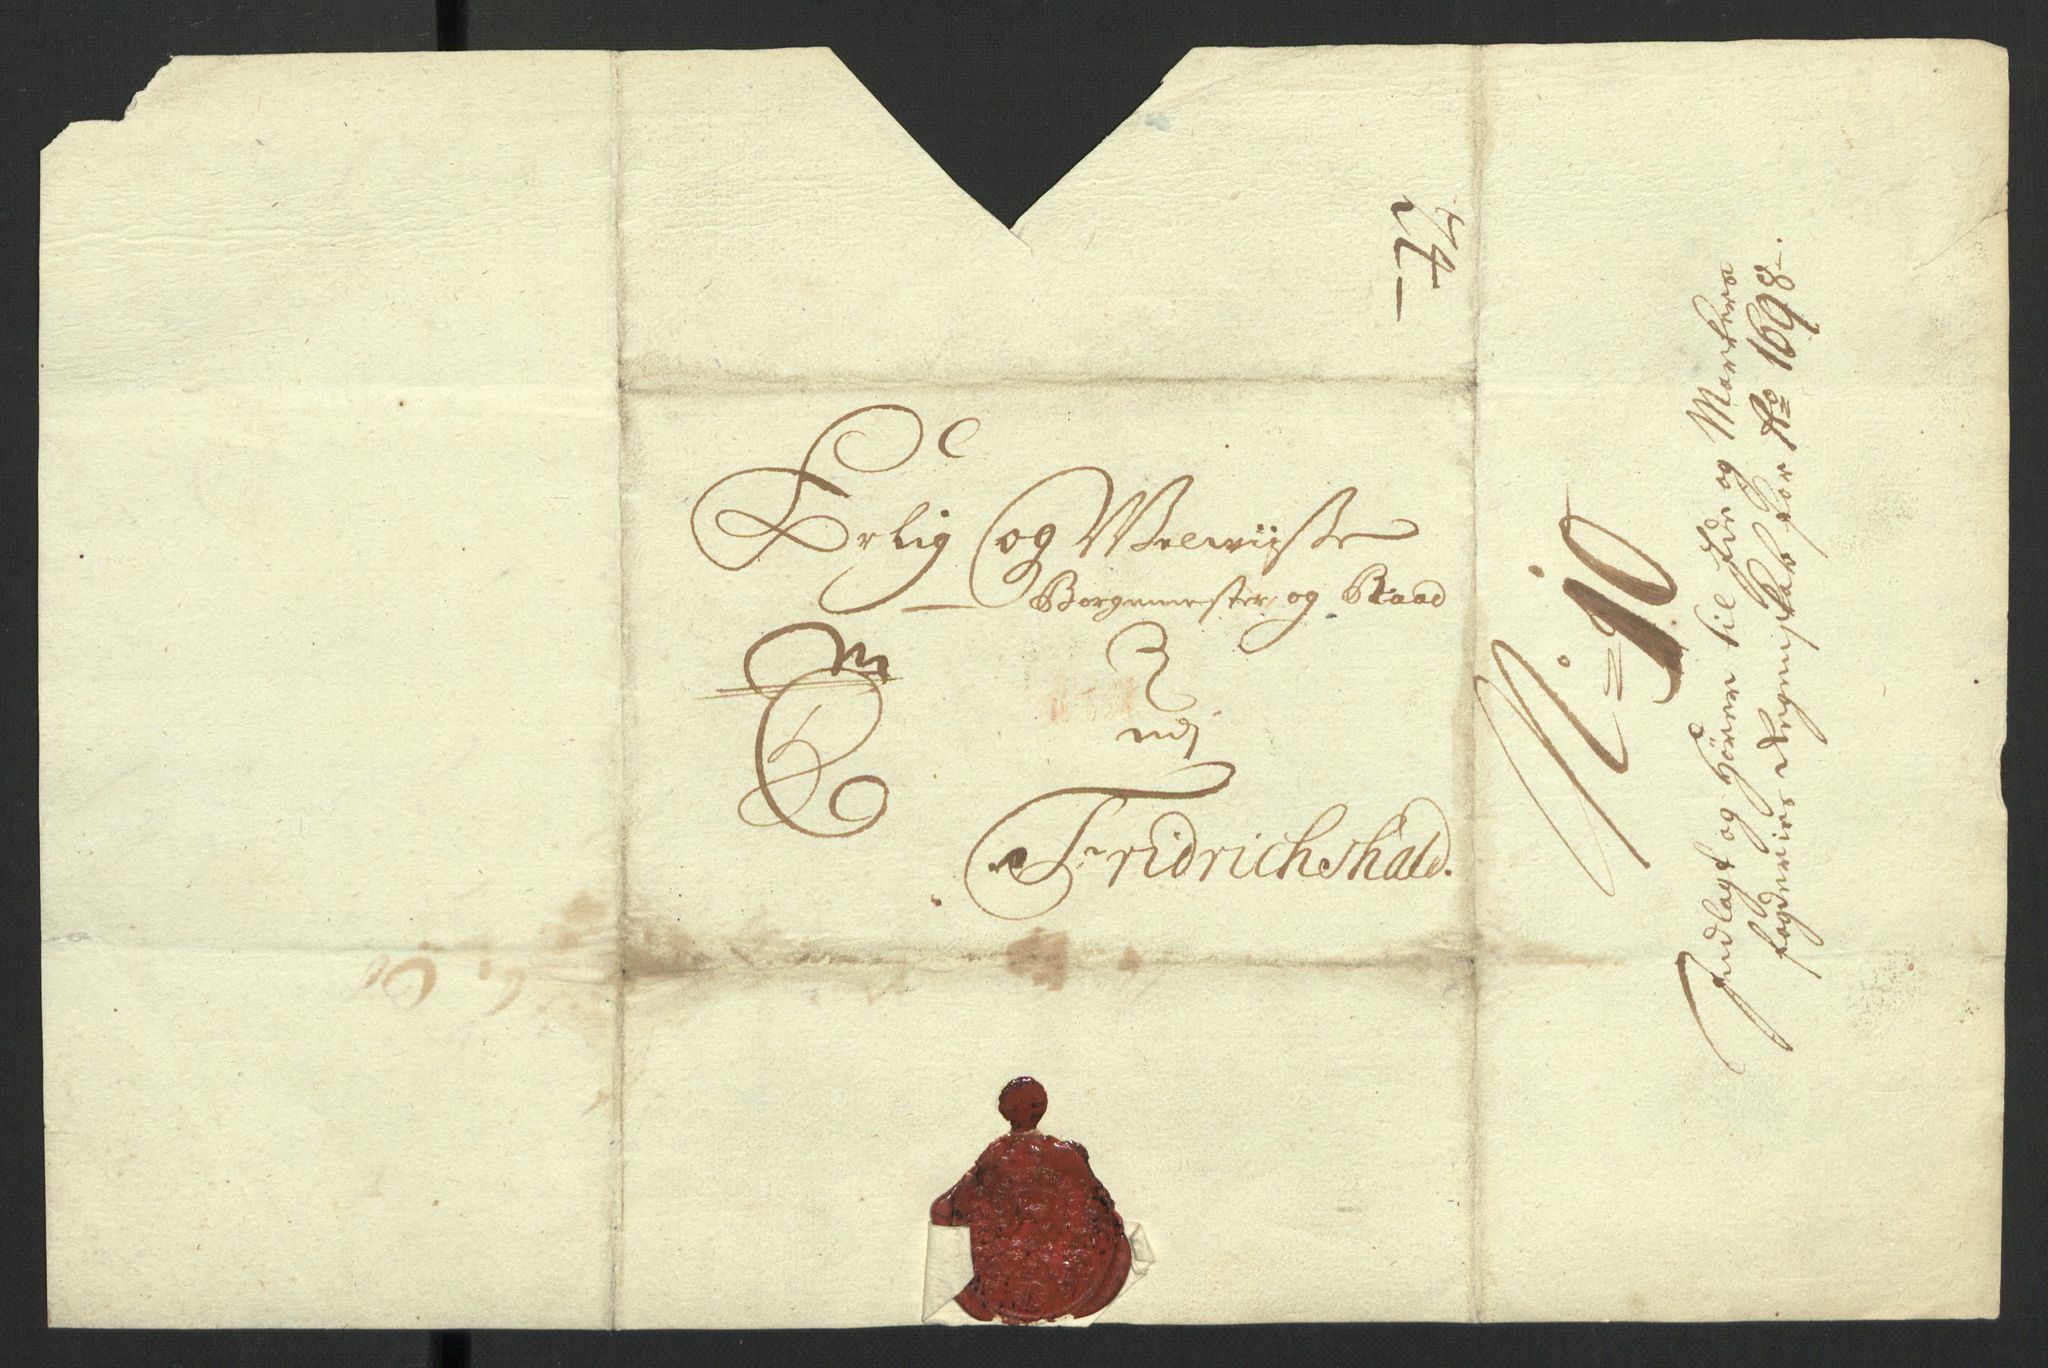 Erlig og Velwiise
Borgemester og Raad
udj
Fridrichshald.
No 10
Indlagt og hörer til Ide og Markers
fogderies Regenskab for Ao 1698.